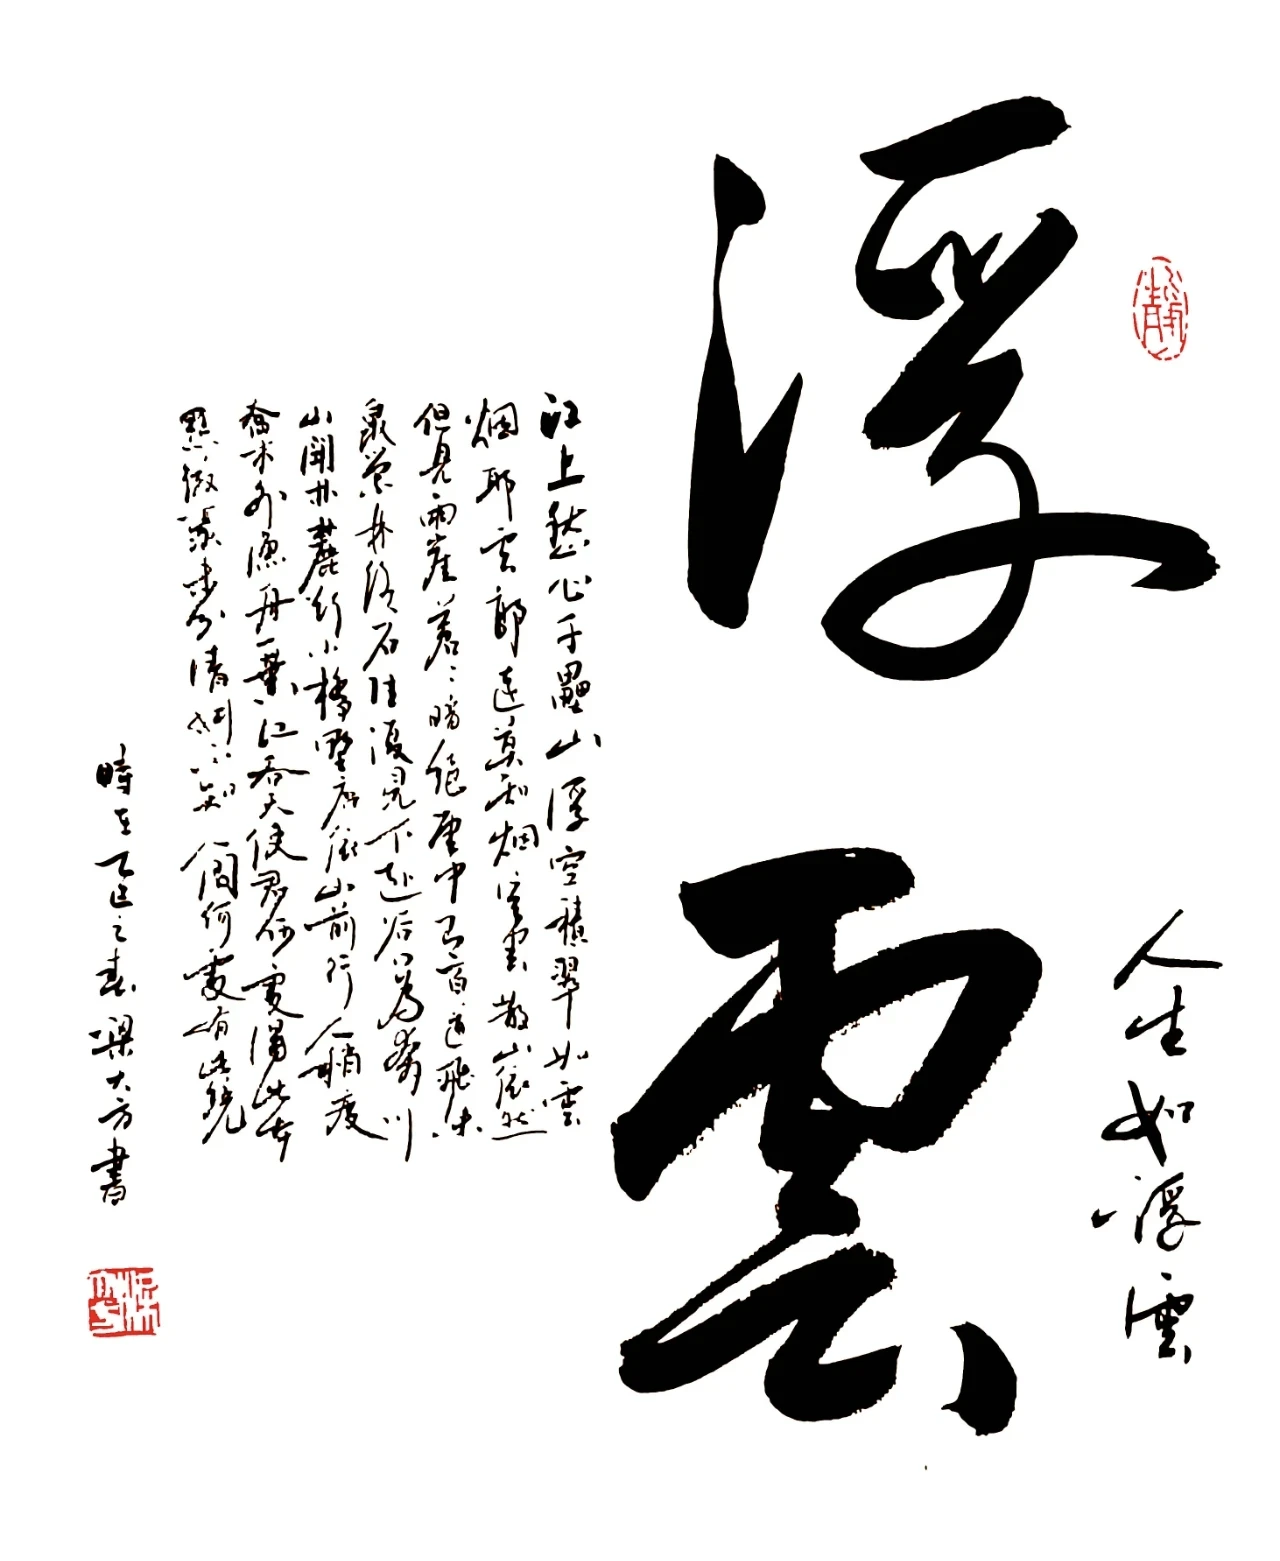 人生如浮雲
浮雲
江上愁心千疊山浮空積翠如雲
烟耶云耶遠莫知烟空雲散山依然
但見兩崖蒼蒼暗絕厓中有百道飛来
泉縈林絡石隹復見下赴谷口為奔川
山開林麓斷小橋野店依山前行人稍度
喬木外漁舟一葉江吞天使君何處得此本
點綴毫末分清妍不知人間何處有此境
時在乙巳之春梁大方書